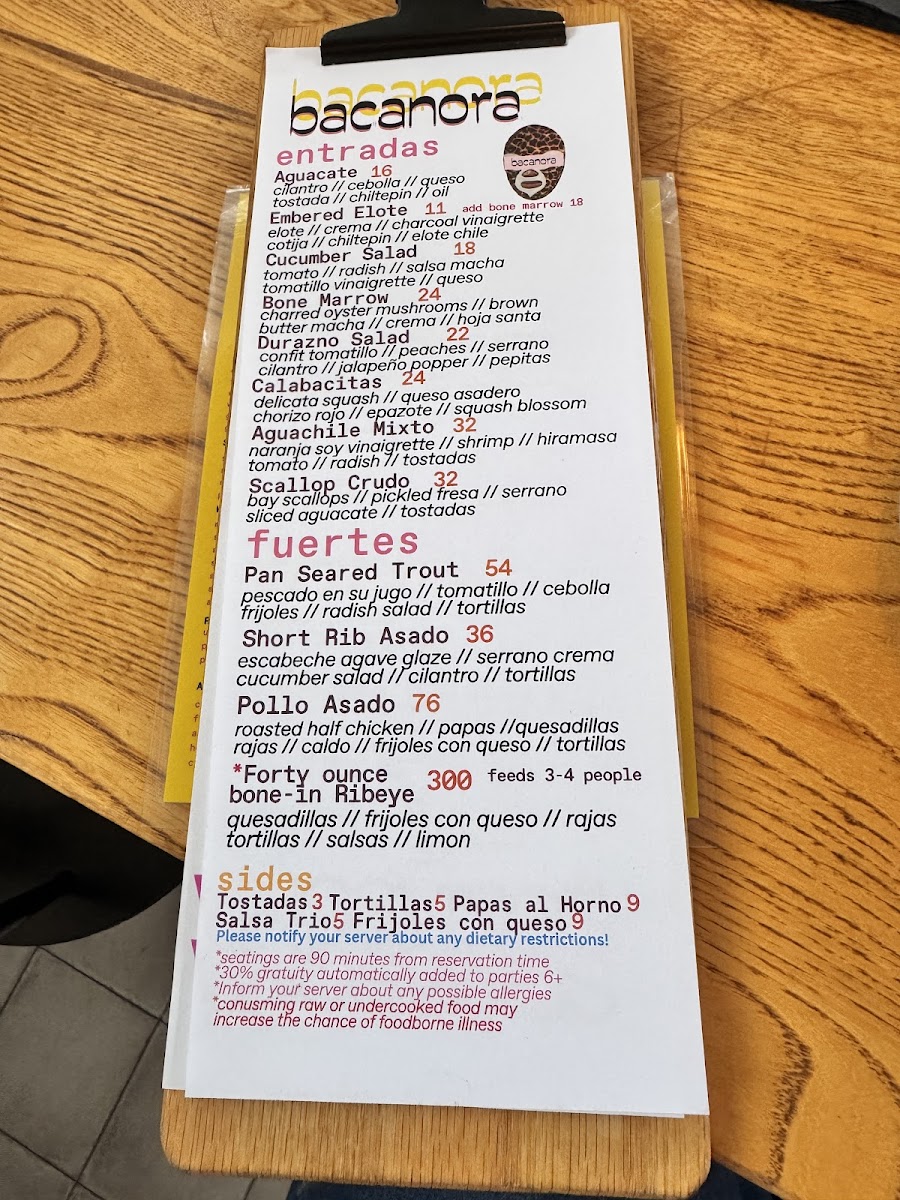 bacanora
bacanora
entradas
bacanora
Aguacate 16
cilantro // cebolla // queso
tostada // chiltepin // oil
Embered Elote 11 add bone marrow 18
elote // crema // charcoal vinaigrette
cotija // chiltepin // elote chile
Cucumber Salad 18
tomato // radish // salsa macha
tomatillo vinaigrette // queso
Bone Marrow 24
charred oyster mushrooms // brown
butter macha // crema // hoja santa
Durazno Salad 22
confit tomatillo // peaches // serrano
cilantro // jalapeño popper // pepitas
Calabacitas 24
delicata squash // queso asadero
chorizo rojo // epazote // squash blossom
Aguachile Mixto 32
naranja soy vinaigrette // shrimp // hiramasa
tomato // radish // tostadas
Scallop Crudo 32
bay scallops // pickled fresa // serrano
sliced aguacate // tostadas
fuertes
Pan Seared Trout 54
pescado en su jugo // tomatillo // cebolla
frijoles // radish salad // tortillas
Short Rib Asado 36
escabeche agave glaze // serrano crema
cucumber salad // cilantro // tortillas
Pollo Asado 76
roasted half chicken // papas //quesadillas
rajas // caldo // frijoles con queso // tortillas
*Forty ounce
bone-in Ribeye 300 feeds 3-4 people
quesadillas // frijoles con queso // rajas
tortillas // salsas // limon
sides
Tostadas3 Tortillas5 Papas al Horno 9
Salsa Trio5 Frijoles con queso 9
Please notify your server about any dietary restrictions!
*seatings are 90 minutes from reservation time
*30% gratuity automatically added to parties 6+
*Inform your server about any possible allergies
*conusming raw or undercooked food may
increase the chance of foodborne illness